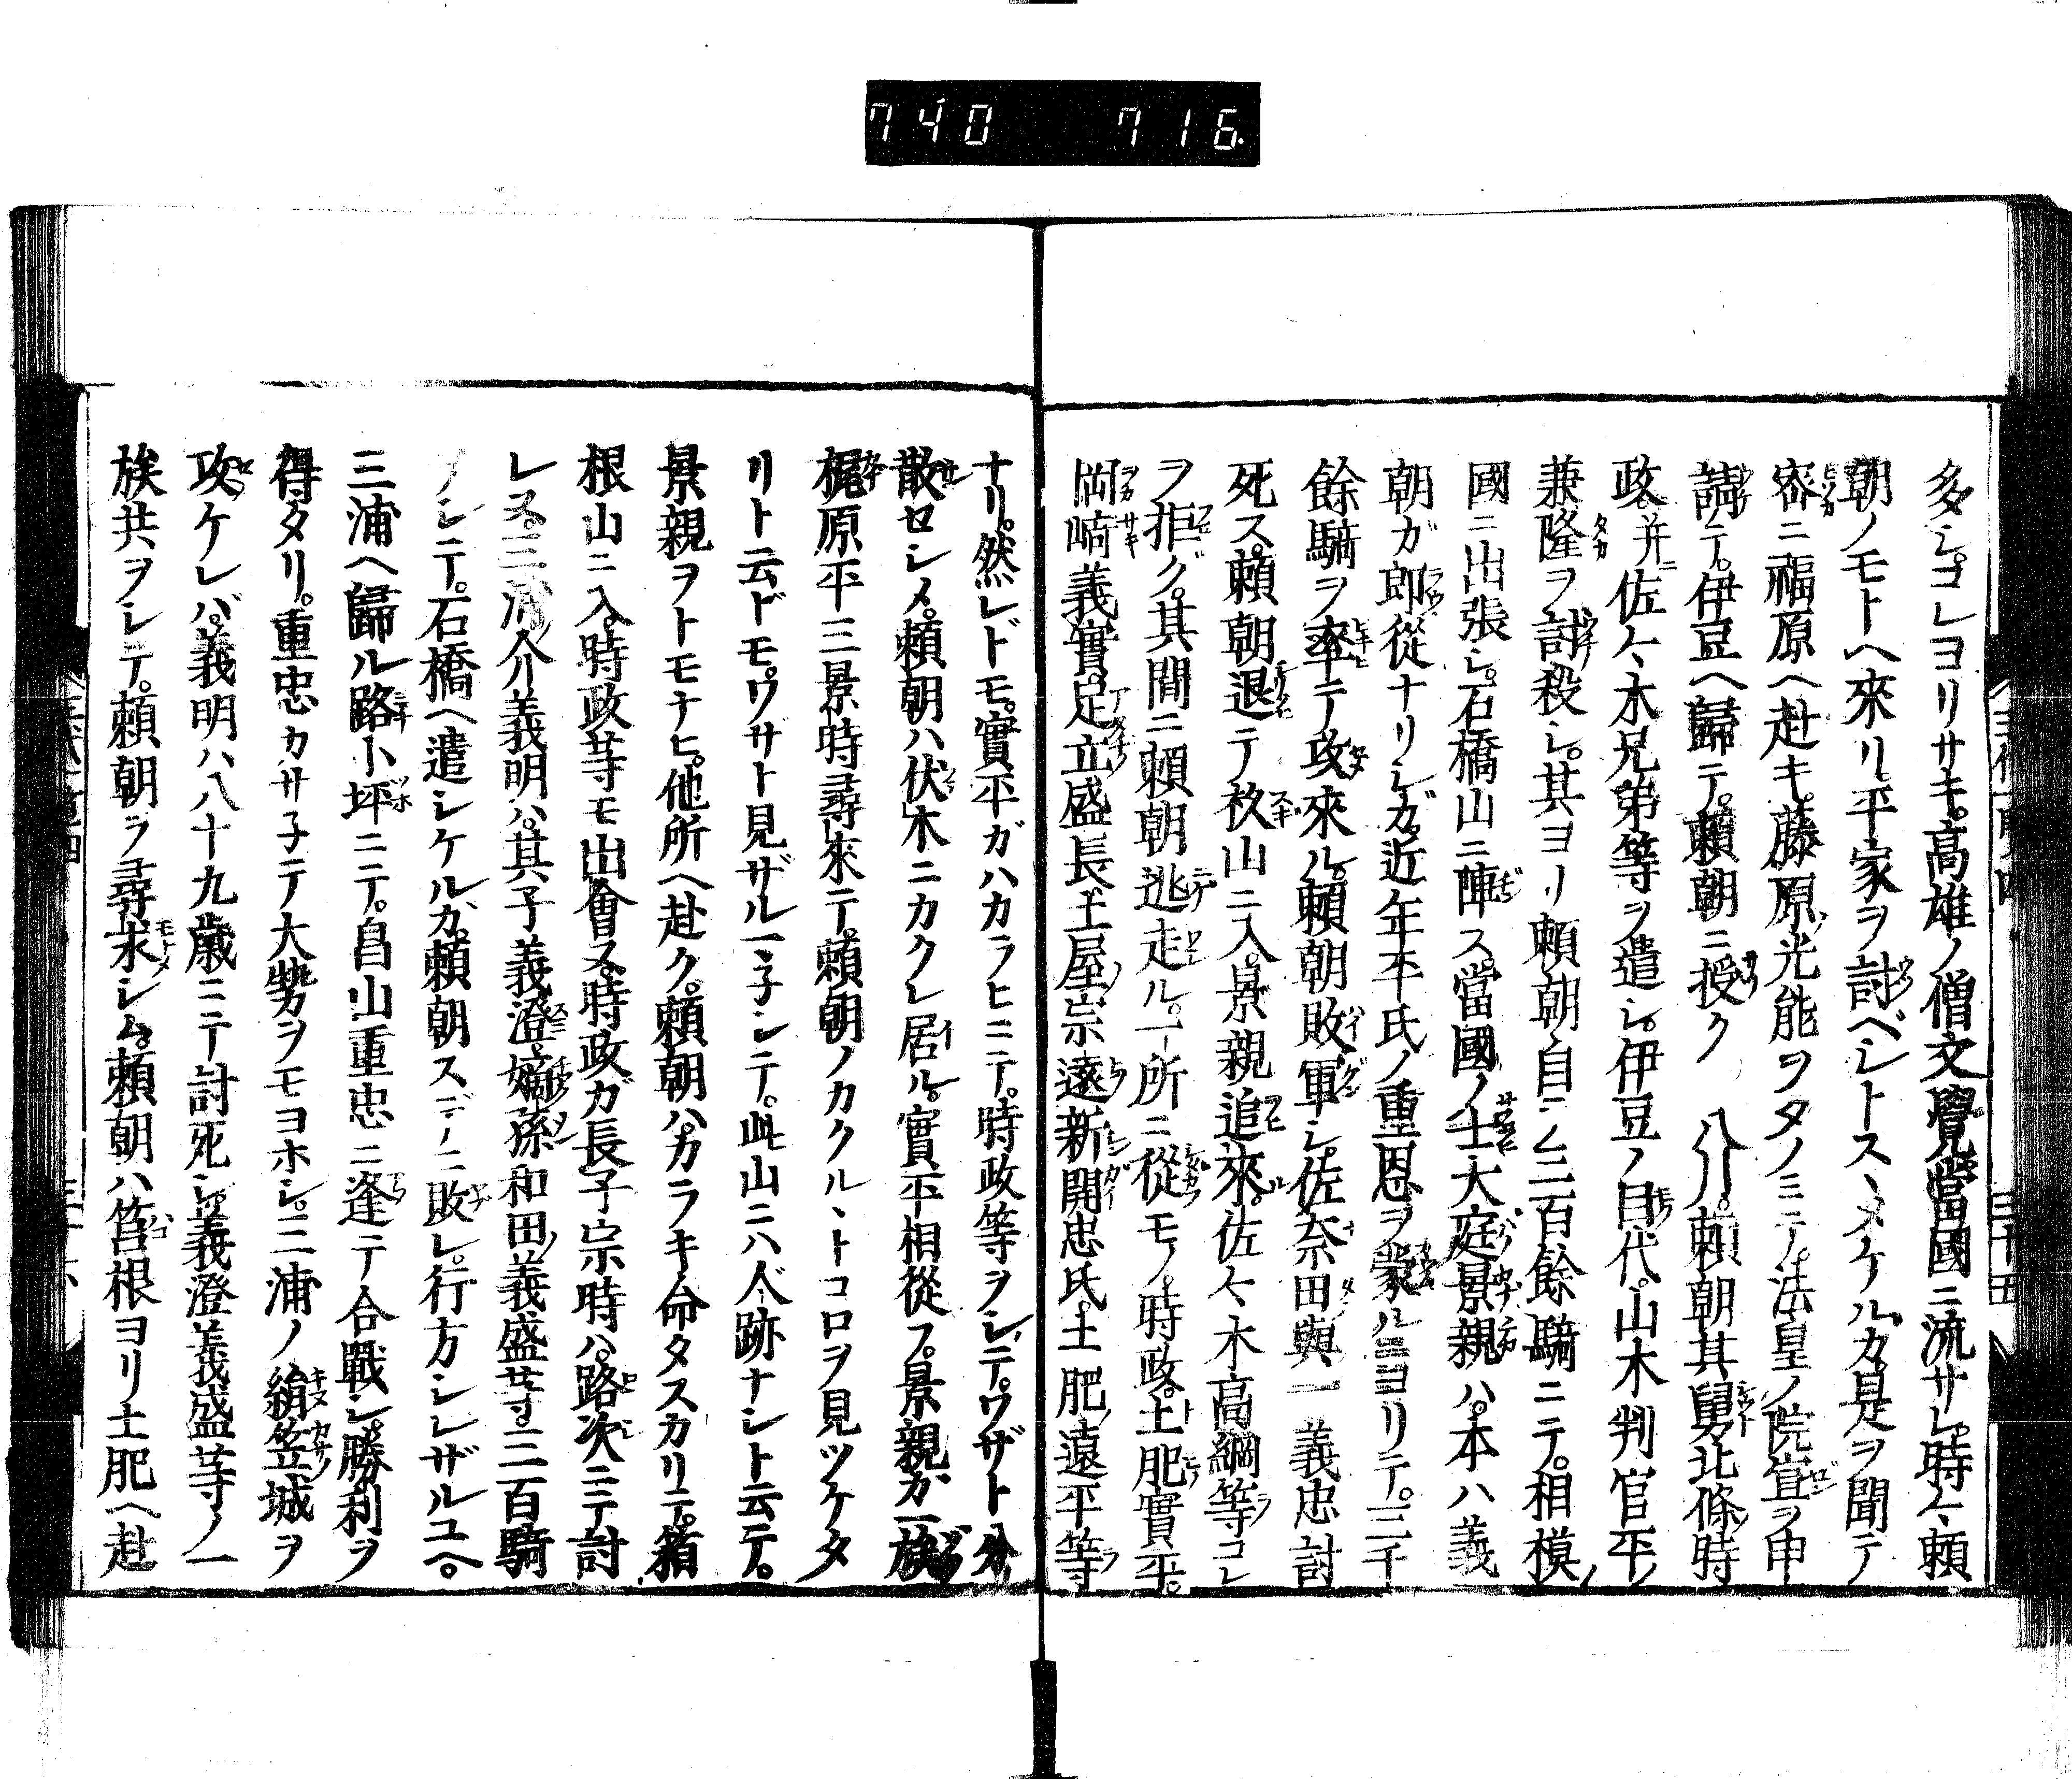 740 716
多シ。コレヨリサキ。高雄ノ僧文覺當國ニ流サレ。時々頼
朝ノモトヘ來リ平家ヲ討ベシトスヽメケルカ。是ヲ聞テ
密ニ福原ヘ赴キ。藤原光能ヲタノミテ。法皇ノ院宣ヲ申
請テ。伊豆ヘ歸テ。頼朝ニ授ク 八月。頼朝其舅北條時
政并佐々木兄弟等ヲ遣シ。伊豆ノ目代。山木判官平
兼隆ヲ討殺シ。其ヨリ頼朝自ラ三百餘騎ニテ。相模
國ニ出張シ。石橋山ニ陣ス。當國ノ士大庭景親ハ。本ハ義
朝ガ郎從ナリシガ。近年平氏ノ重恩ヲ蒙ルニヨリテ。三千
餘騎ヲ率テ攻來ル。頼朝敗軍シ。佐奈田與一義忠討
死ス。頼朝退テ杦山ニ入。景親追來。佐々木高綱等コレ
ヲ拒グ。其間ニ頼朝逃走ル。一所ニ從モノ。時政。土肥實平。
岡崎義實。足立盛長。土屋宗遠新開忠氏。土肥遠平等
ナリ。然レドモ。實平ガハカラヒニテ。時政等ヲシテ。ワザト分
散セシメ。頼朝ハ伏木ニカクレ居ル。實平相從フ。景親カ一族
梶原平三景時尋來テ。頼朝ノカクルヽトコロヲ見ツケタ
リト云ドモ。ワザト見ザルマ子シテ。此山ニハ人跡ナシト云テ。
景親ヲトモナヒ。他所ヘ赴ク。頼朝ハ。カラキ命タスカリテ。箱
根山ニ入。時政等モ出會ス。時政ガ長子宗時ハ。路次ニテ討
レヌ。三浦介義明ハ。其子義澄。嫡孫和田義盛等三百騎
ノシテ。石橋ヘ遣シケルカ。頼朝スデニ敗レ。行方シレザルユヘ。
三浦ヘ歸ル路小坪ニテ。畠山重忠ニ逢テ合戰シ。勝利ヲ
得タリ。重忠カサ子テ大勢ヲモヨホシ。三浦ノ絹笠城ヲ
攻ケレバ。義明ハ八十九歳ニテ討死シ。義澄義盛等ノ一
族共ヲシテ。頼朝ヲ尋求シム。頼朝ハ筥根ヨリ土肥ヘ赴